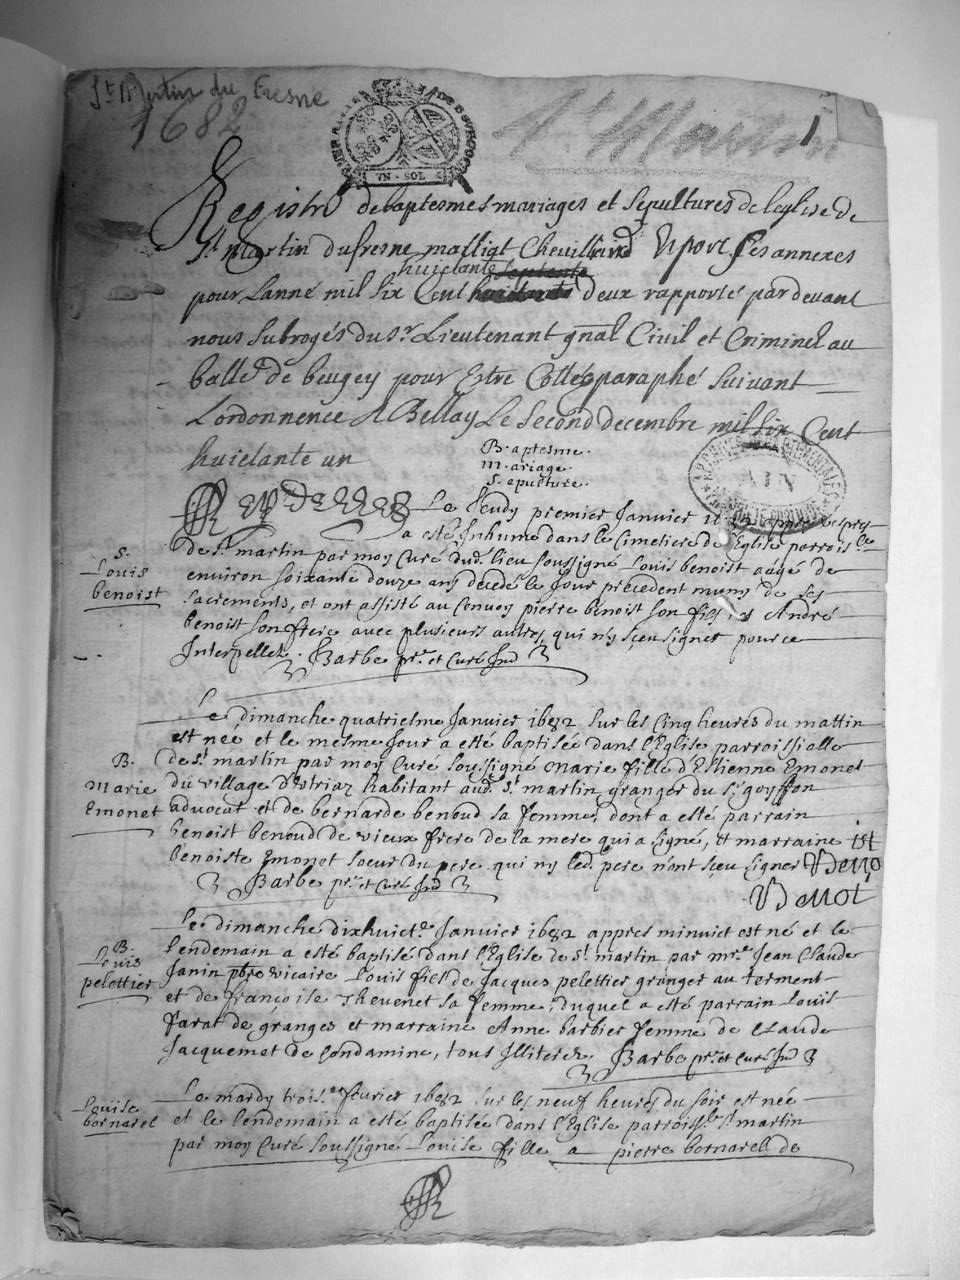 St Martin du Fresne
1682
St Martin
1
UN SOL
Registre de baptesmes mariages et Sepultures de leglise de
St Martin du fresne malliat Chevilliard Ses annexes
huictante septante
pour Lanné mil six Cent deux rapporté par devant
nous Subrogés du Sr. Lieutenant gnal Civil et Criminel au
balle de beugey pour Estre Cotté paraphé Suivant
Lordonnence A Bellay Le Second decembre mil six Cent
huictante un
B.aptesme.
m.ariage.
S.epulture.
Le Jeudy premier Janvier
a esté Inhumé dans le Cimetiere de l'Eglise parroisle
de St. martin par moy Curé dud. lieu soussigné Louis benoist aagé de
S.
Louis
benoist
environ soixante douze ans decedé le Jour precedent muny de ses
sacrements, et ont assisté au Convoy pierre benoist son fils et André
benoist son frere avec plusieurs autres, qui n'y sceu signer pour ce
Interpellez. Barbe ptr. et Curé Ind
Le dimanche quatriesme Janvier 1682 sur les cinq heures du mattin
est née et le mesme Jour a esté baptisée dans l'Eglise parroissialle
de St. martin par moy Curé soussigné marie fille d'Estienne Emonet
B.
marie
Emonet
du village d'Estriaz habitant aud. St. martin granger du Sr. goyffon
advocat et de bernarde benoud sa femme, dont a esté parrain
benoist benoud de vieux frere de la mere qui a signé, et marraine
benoiste Emonet soeur du pere qui ny led. pere n'ont sceu signer
Barbe ptr. et Curé Ind
Le dimanche dixhuicte. Janvier 1682 appres minuict est né et le
lendemain a esté baptisé dans l'Eglise de St. martin par mre. Jean Claude
B.
Louis
pelettier
Janin ptre vicaire Louis fils de Jacques pelettier granger au torment
et de françoise Thevenet sa femme, duquel a esté parrain Louis
farat de granges et marraine Anne barbier femme de Claude
Jacquemet de Condamine, tous Illiterez. Barbe ptr. et Curé Ind
Le mardy trois.me février 1682 sur les neuf heures du soir est née
Louise
bornarel
et le lendemain a esté baptisée dans l'Eglise parroissle. St. martin
par moy Curé soussigné Louise fille a pierre bornarell de